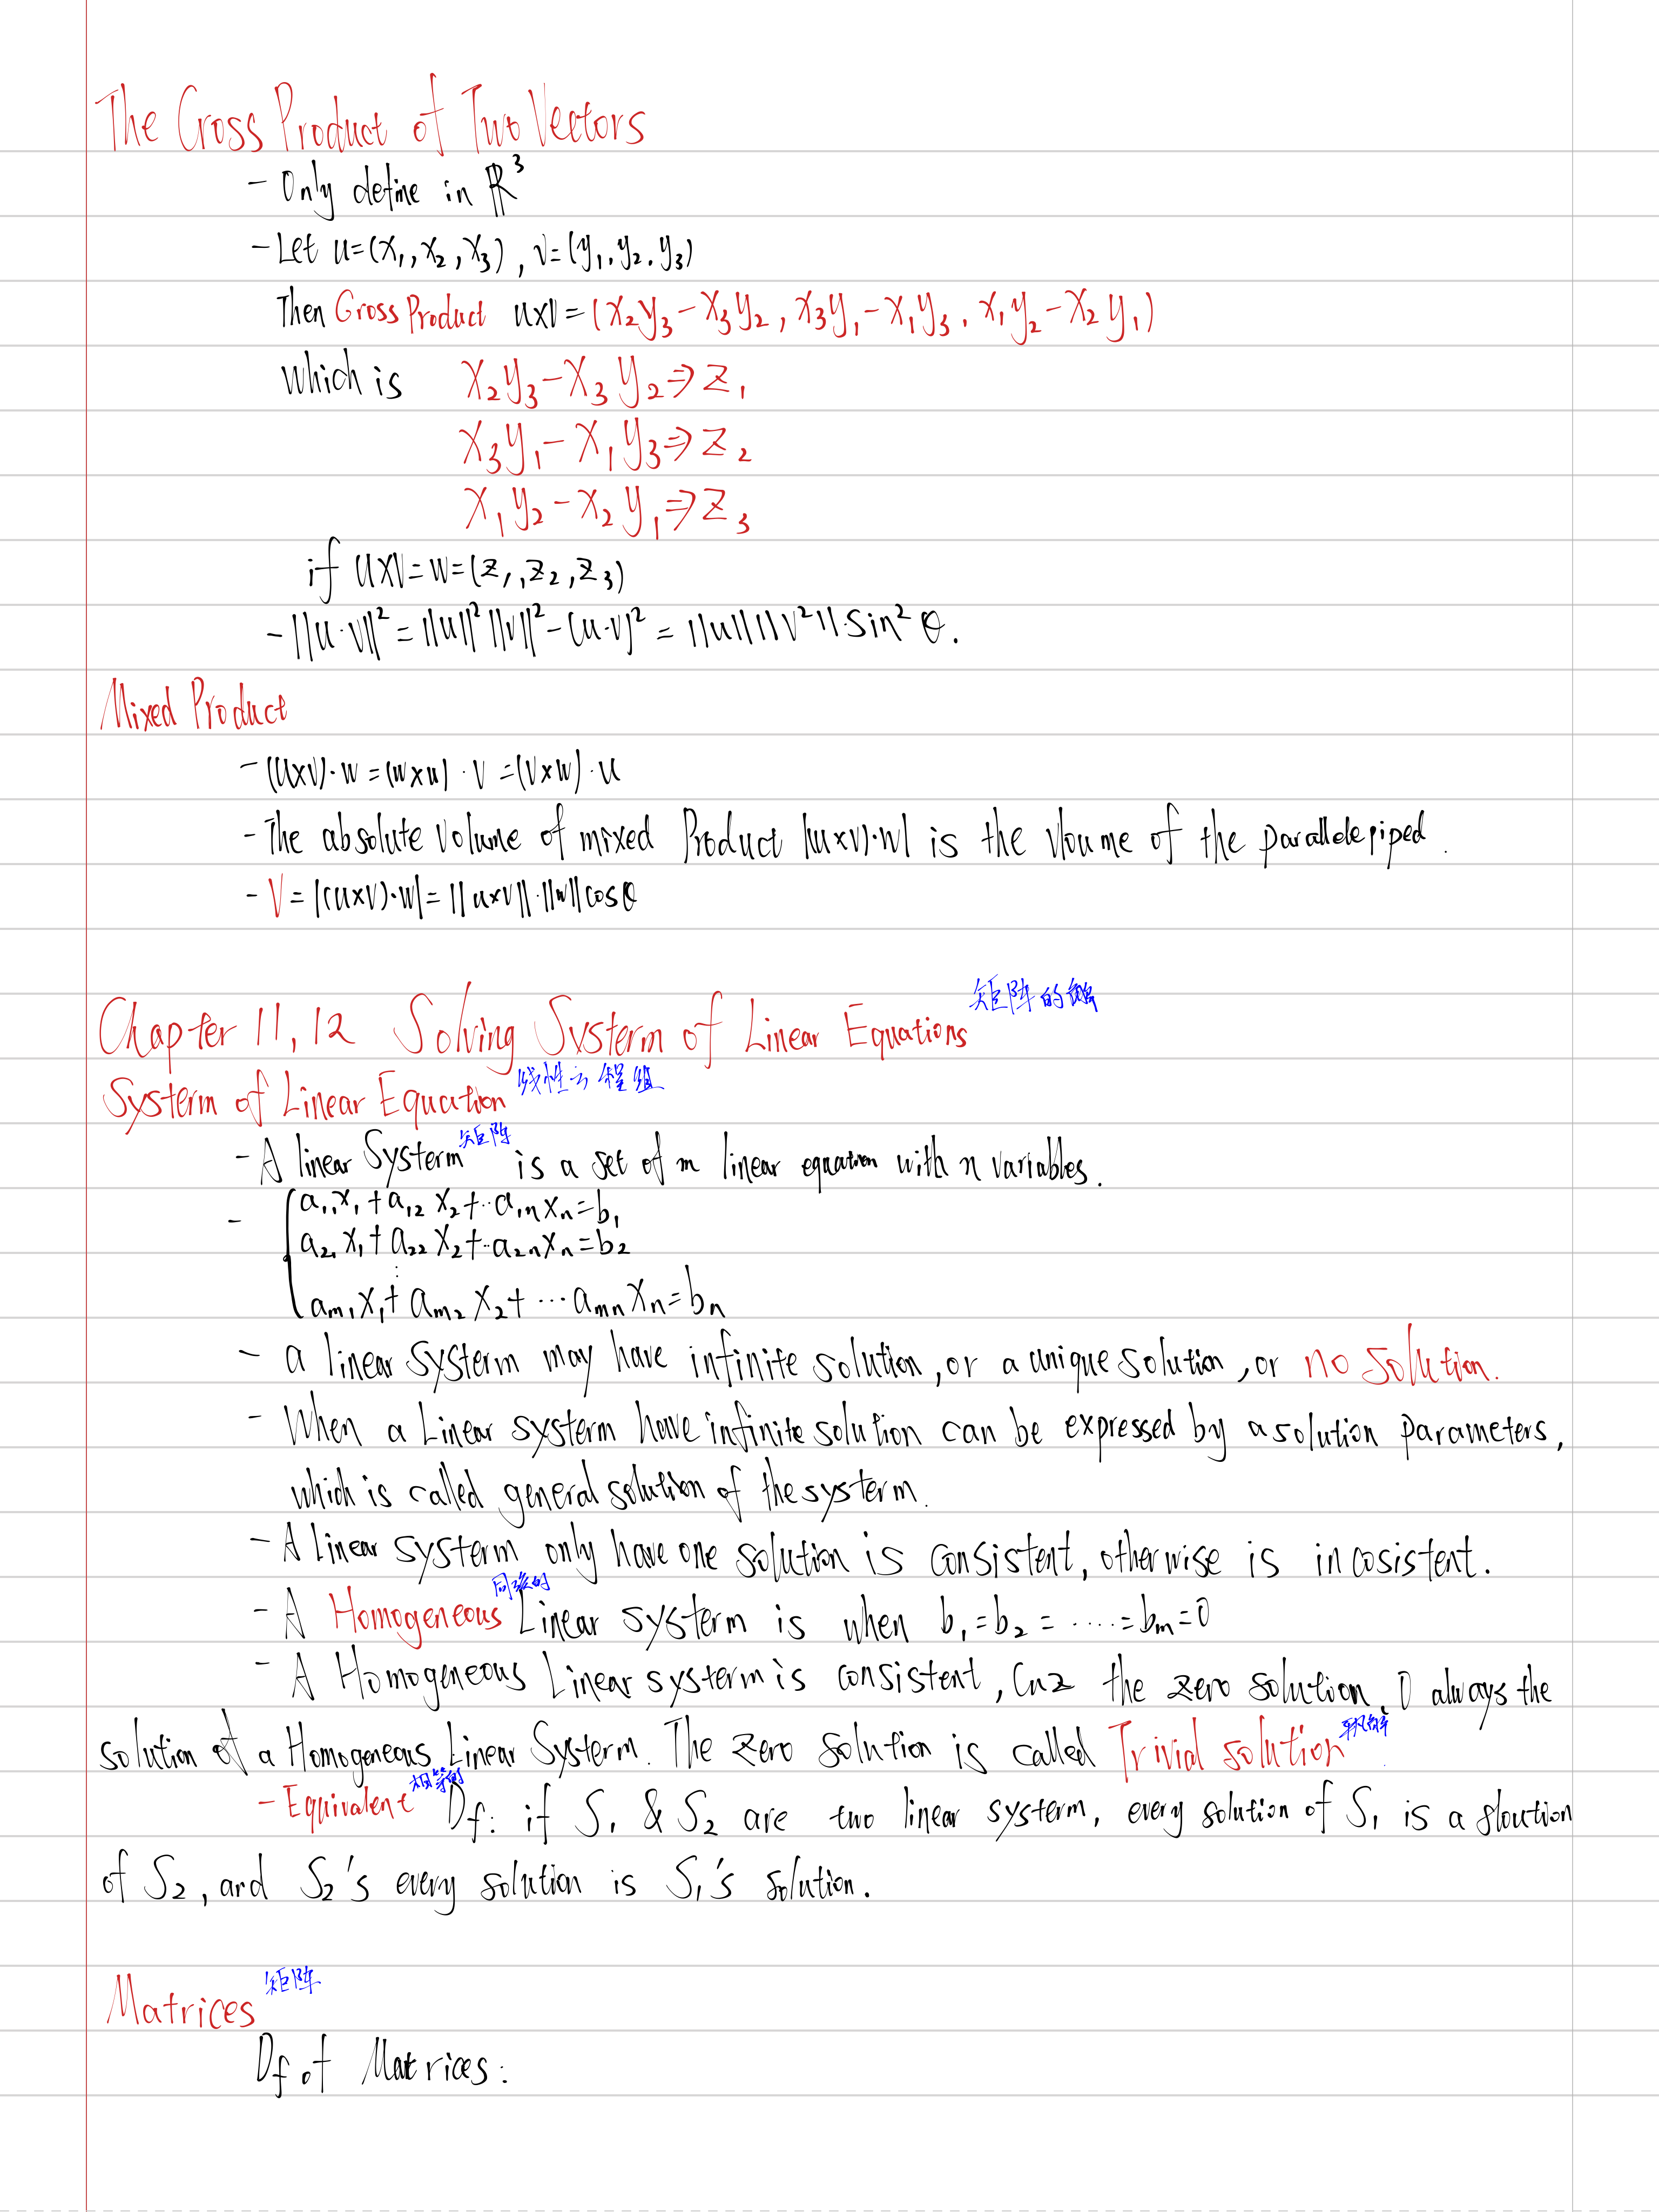 The Cross Product of Two Vectors
- Only define in ℝ³
- Let u=(x₁,x₂,x₃), v=(y₁,y₂,y₃)
Then Cross Product u×v=(x₂y₃-x₃y₂, x₃y₁-x₁y₃, x₁y₂-x₂y₁)
which is x₂y₃-x₃y₂⇒z₁
x₃y₁-x₁y₃⇒z₂
x₁y₂-x₂y₁⇒z₃
if u×v=w=(z₁,z₂,z₃)
- ||u·v||²=||u||²||v||²-(u·v)²=||u||||v²||·sin²θ.
Mixed Product
- (u×v)·w=(w×u)·v=(v×w)·u
- The absolute volume of mixed Product |u×v)·w| is the vloume of the parallelepiped.
- V=|(u×v)·w|=||u×v||·||w||cosθ
Chapter 11,12 Solving Systerm of Linear Equations 矩阵的
Systerm of Linear Equation 线性方程组
- A linear Systerm 矩阵 is a set of m linear equation with n variables.
- a₁₁x₁+a₁₂x₂+··a₁ₙxₙ=b₁
a₂₁x₁+a₂₂x₂+··a₂ₙxₙ=b₂
⋮
aₘ₁x₁+aₘ₂x₂+···aₘₙxₙ=bₙ
- a linear systerm may have infinite solution, or a unique solution, or no solution.
- When a Linear systerm have infinite solution can be expressed by a solution parameters,
which is called general solution of the systerm.
- A linear systerm only have one solution is consistent, otherwise is incosistent.
- A Homogeneous Linear systerm is when b₁=b₂=·····=bₘ=0
- A Homogeneous Linear systerm is consistent, Cuz the zero solution, 0 always the
solution of a Homogeneous Linear Systerm. The zero solution is called Trivial solution 平凡解.
- Equivalent 相等的 Df: if S₁ & S₂ are two linear systerm, every solution of S₁ is a sloution
of S₂, and S₂'s every solution is S₁'s solution.
Matrices 矩阵
Df of Matrices: